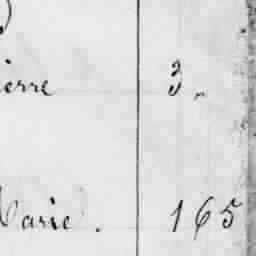 ierre 3
Marie. 165